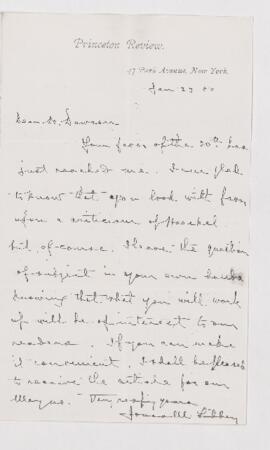 Princeton Review.
47 Park Avenue, New York.
Jan 23 80
Dear Dr. Dawson
Your favor of the 20th has
just reached me. I was glad
to know that you look with favor
upon a criticism of Haeckel
but of course I leave the question
of subject in your own hands
knowing that what you will work
up will be of interest to our
readers. If you can make
it convenient, I shall be pleased
to receive the article for our
Very resp'y yours
Jonas M. Libbey